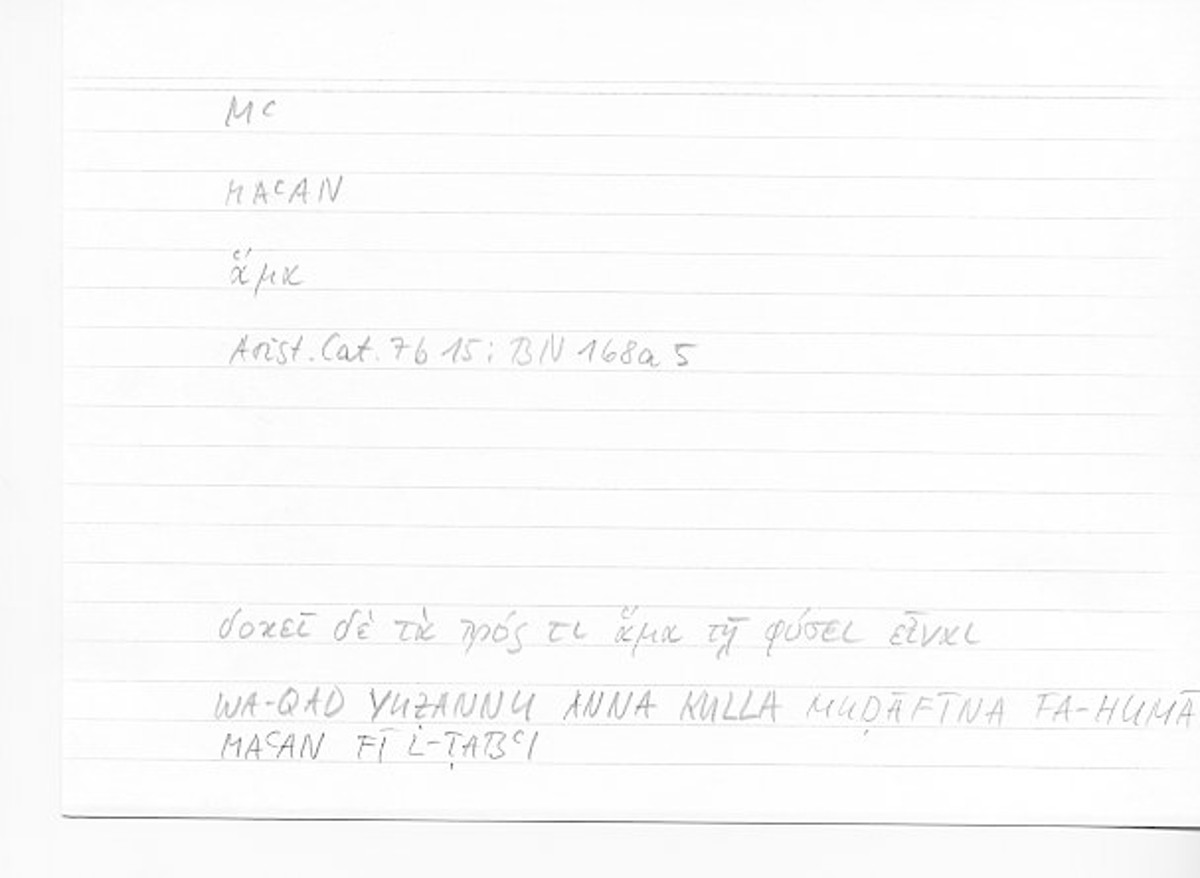 Mᶜ
MAᶜAN
ἅμα
Arist. Cat. 7b 15; BN 168a 5
δοκεῖ δὲ τὰ πρός τι ἅμα τῇ φύσει εἶναι
WA-QAD YUẒANNU ANNA KULLA MUḌĀFĪNA FA-HUMĀ
MAᶜAN FĪ L-ṬABᶜI